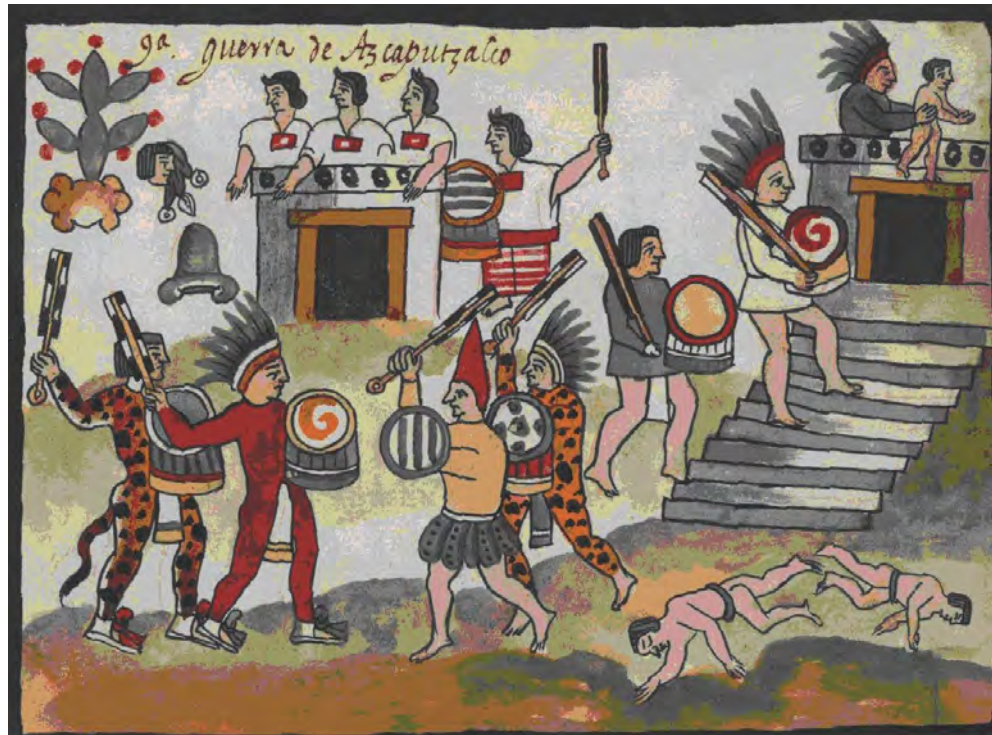 9a. guerra de Azcaputzalco